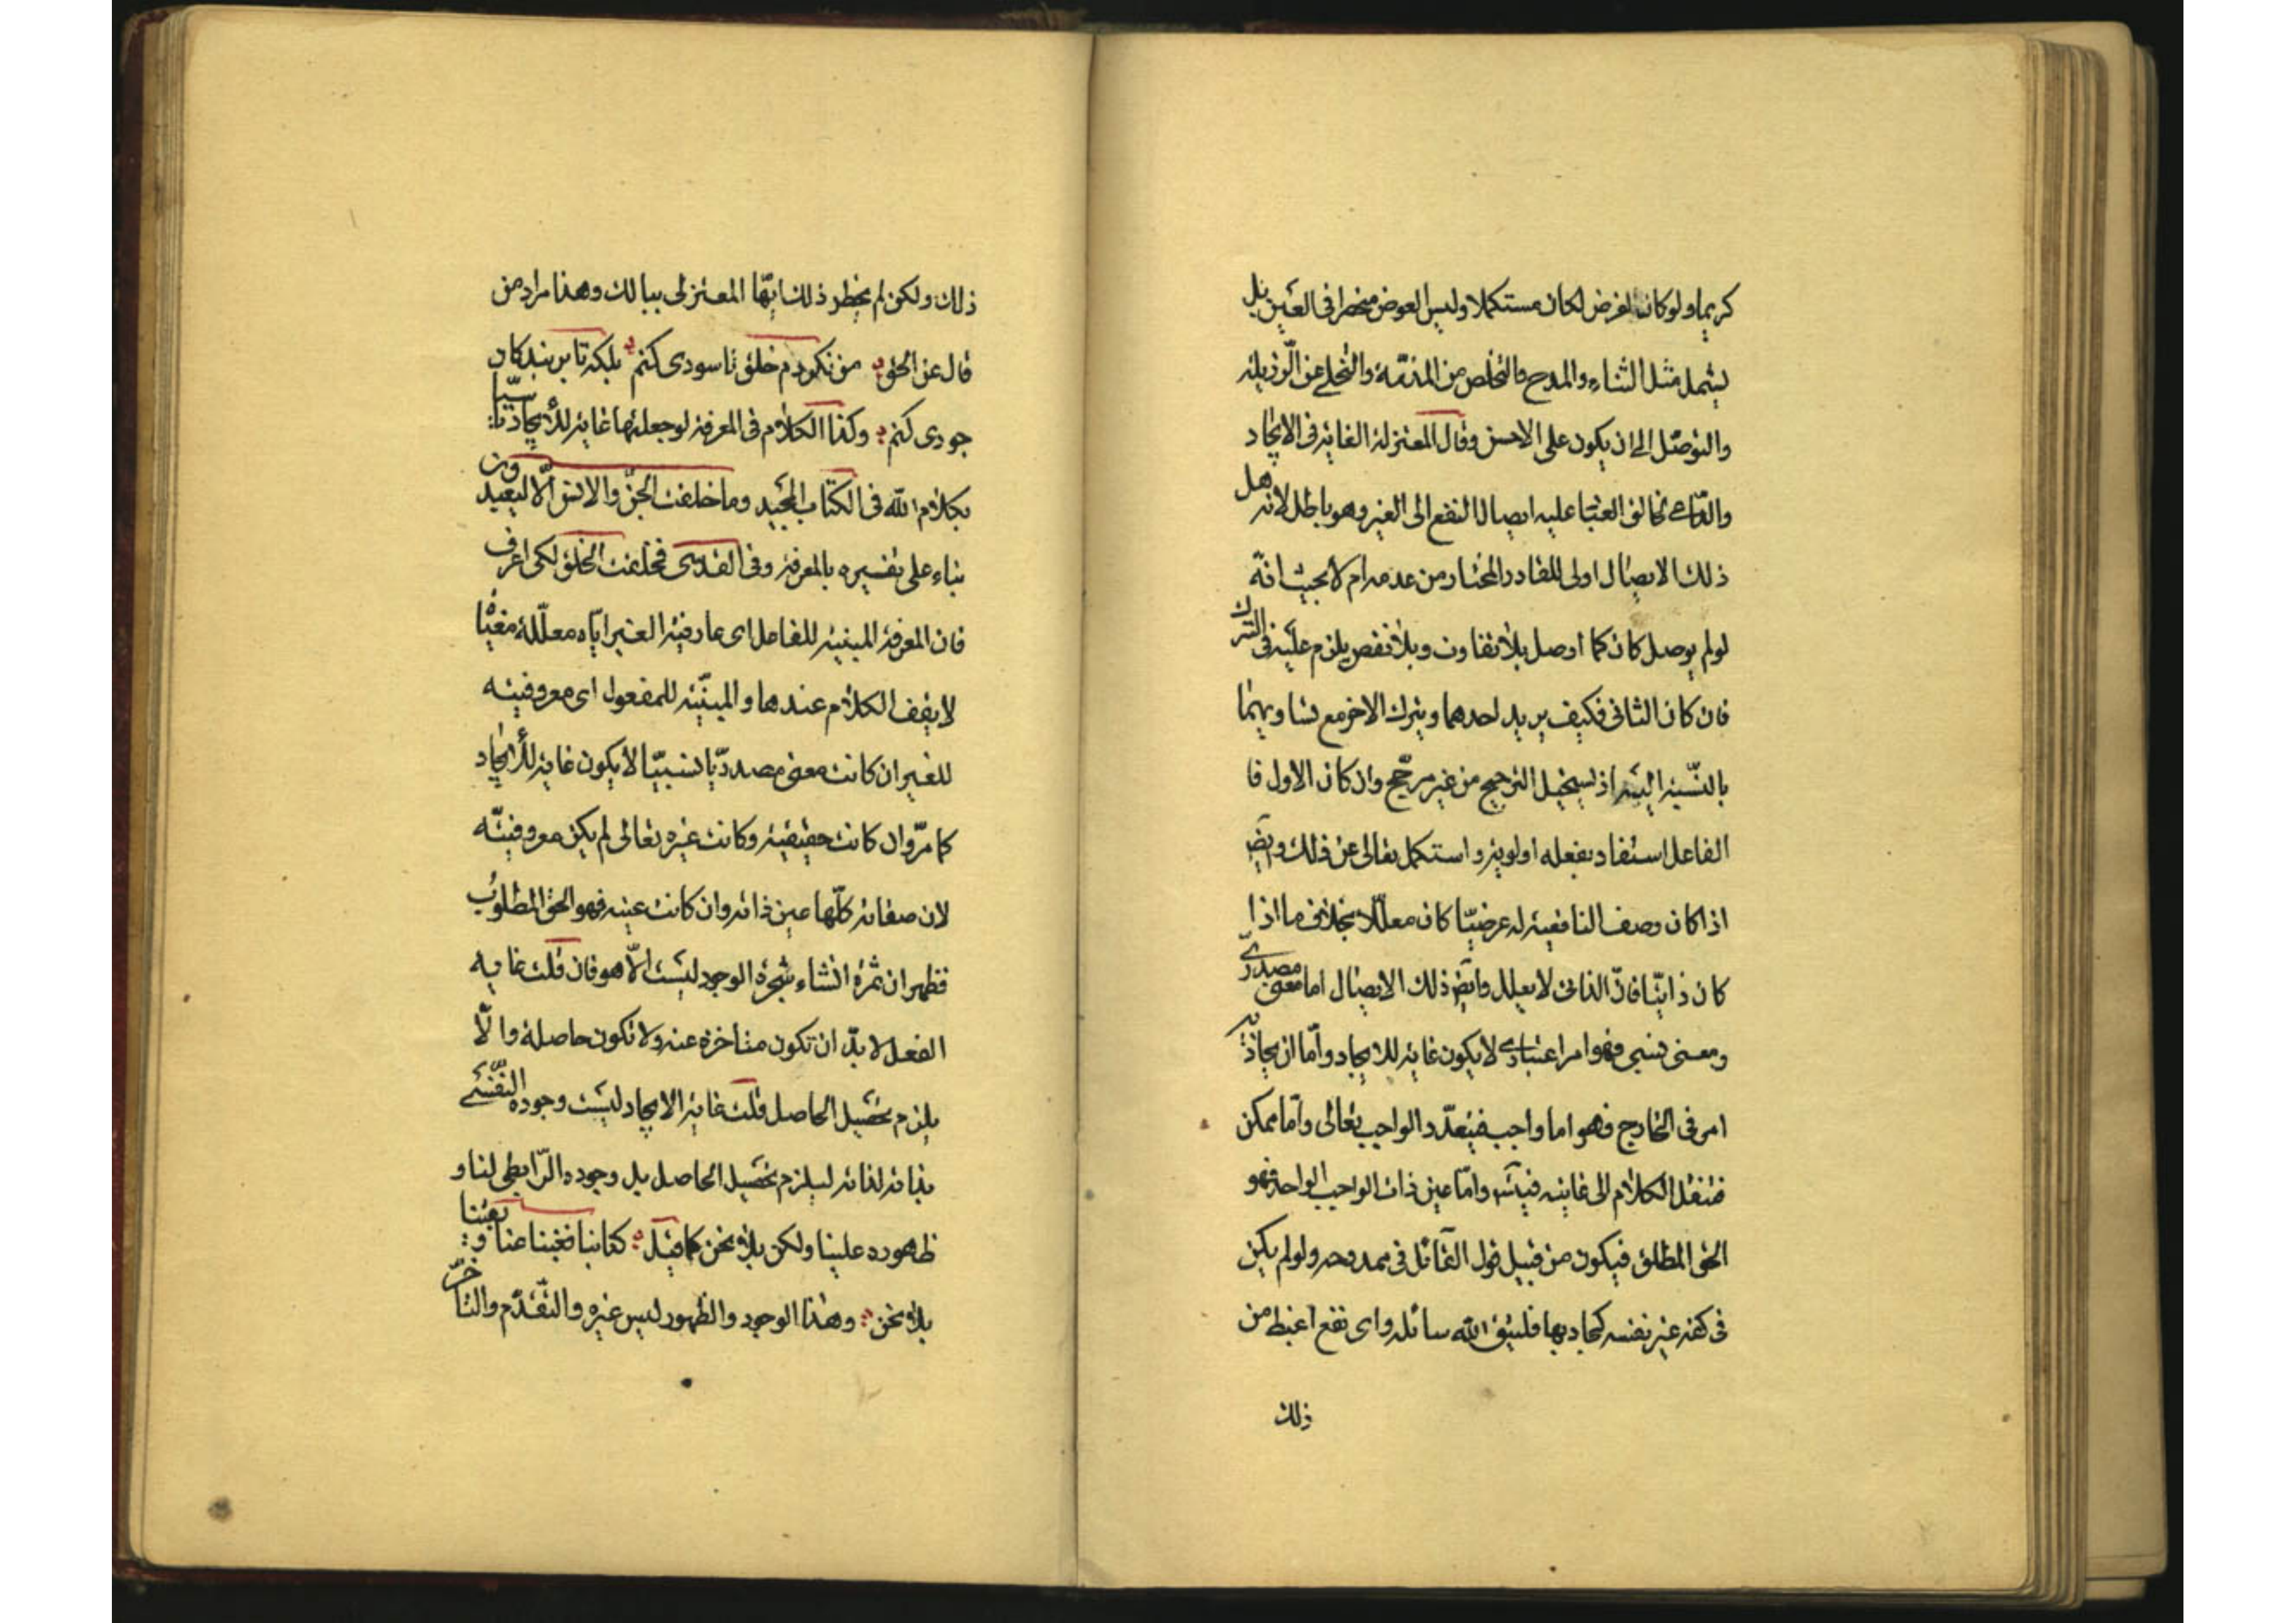 كريما ولو كان لغرض لكان مستكملا وليس العوض منحصرا فى العين بل
يشمل مثل الثناء والمدح والتخلص من المذمّة والتخلى عن الرّذيلة
والتوصّل الى ان يكون على الاحسن وقال المعتزلة الغاية فى الايجاد
والدّاعى لخالق العباد عليه ايصال النفع الى الغير وهو باطل لانه هل
ذلك الايصال اولى للقادر المختار من عدمه ام لا بحيث انّه
لو لم يوصل كان كما اوصل بلا تفاوت وبلا نقص يلزم عليه فى الترك
فان كان الثانى فكيف يريد احدهما ويترك الاخر مع تساويهما
بالنّسبة اليه اذ يستحيل الترجيح من غير مرجّح وان كان الاول فا
الفاعل استفاد بفعله اولوية واستكمل تعالى عن ذلك وايض
اذا كان وصف النافعية له عرضيّا كان معلّلا بخلاف ما اذا
كان ذاتيّا فانّ الذاتى لا يعلل وايض ذلك الايصال اما معنى مصدرى
ومعنى نسبى فهو امر اعتبارى لا يكون غاية للايجاد وأمّا ان يحاذيه
امر فى الخارج فهو اما واجب فيتعدّد الواجب تعالى وامّا ممكن
فننقل الكلام الى غايته فيتس وامّا عين ذات الواجب الواحد فهو
الحق المطلق فيكون من قبيل قول القائل فى ممدوحه ولو لم يكن
فى كفه غير نفسه لجاد بها فليتق الله سائله واى نفع اغبط من
ذلك
ذلك ولكن لم يخطر ذلك ايّها المعتزلى ببالك وهذا مراد من
قال عن الحق من نكردم خلق تا سودى كنم بلكه تا بر بندكان
جودى كنم وكذا الكلام فى المعرفة لو جعلتها غاية للايجاد تاسّيا
بكلام الله فى الكتاب المجيد وما خلقت الجنّ والانس الّا ليعبدون
بناء على تفسيره بالمعرفة وفى القدسى فخلقت الخلق لكى اعرف
فان المعرفة المبنية للفاعل اى عارفية الغير ايّاه معلّلة مغيّاة
لا يقف الكلام عندها والمبنيّة للمفعول اى معروفيته
للغير ان كانت معنى مصدريّا نسبيّا لا يكون غاية للايجاد
كما مرّ وان كانت حقيقية وكانت غيره تعالى لم يكن معروفيته
لان صفاته كلّها عين ذاته وان كانت عينه فهو الحق المطلوب
فظهر ان ثمرة انشاء شجرة الوجود ليست الّا هو فان قلت غاية
الفعل لا بدّ ان تكون متاخرة عنه ولا تكون حاصلة والّا
يلزم تحصيل الحاصل قلت غاية الايجاد ليست وجوده النّفسى
بذاته لذاته ليلزم تحصيل الحاصل بل وجوده الرّابطى لنا و
ظهوره علينا ولكن بلا نحن كما قيل كنا بنا فغبنا عنا وبقينا
بلا نحن وهذا الوجود والظهور ليس غيره والتّقدّم والتاخّر